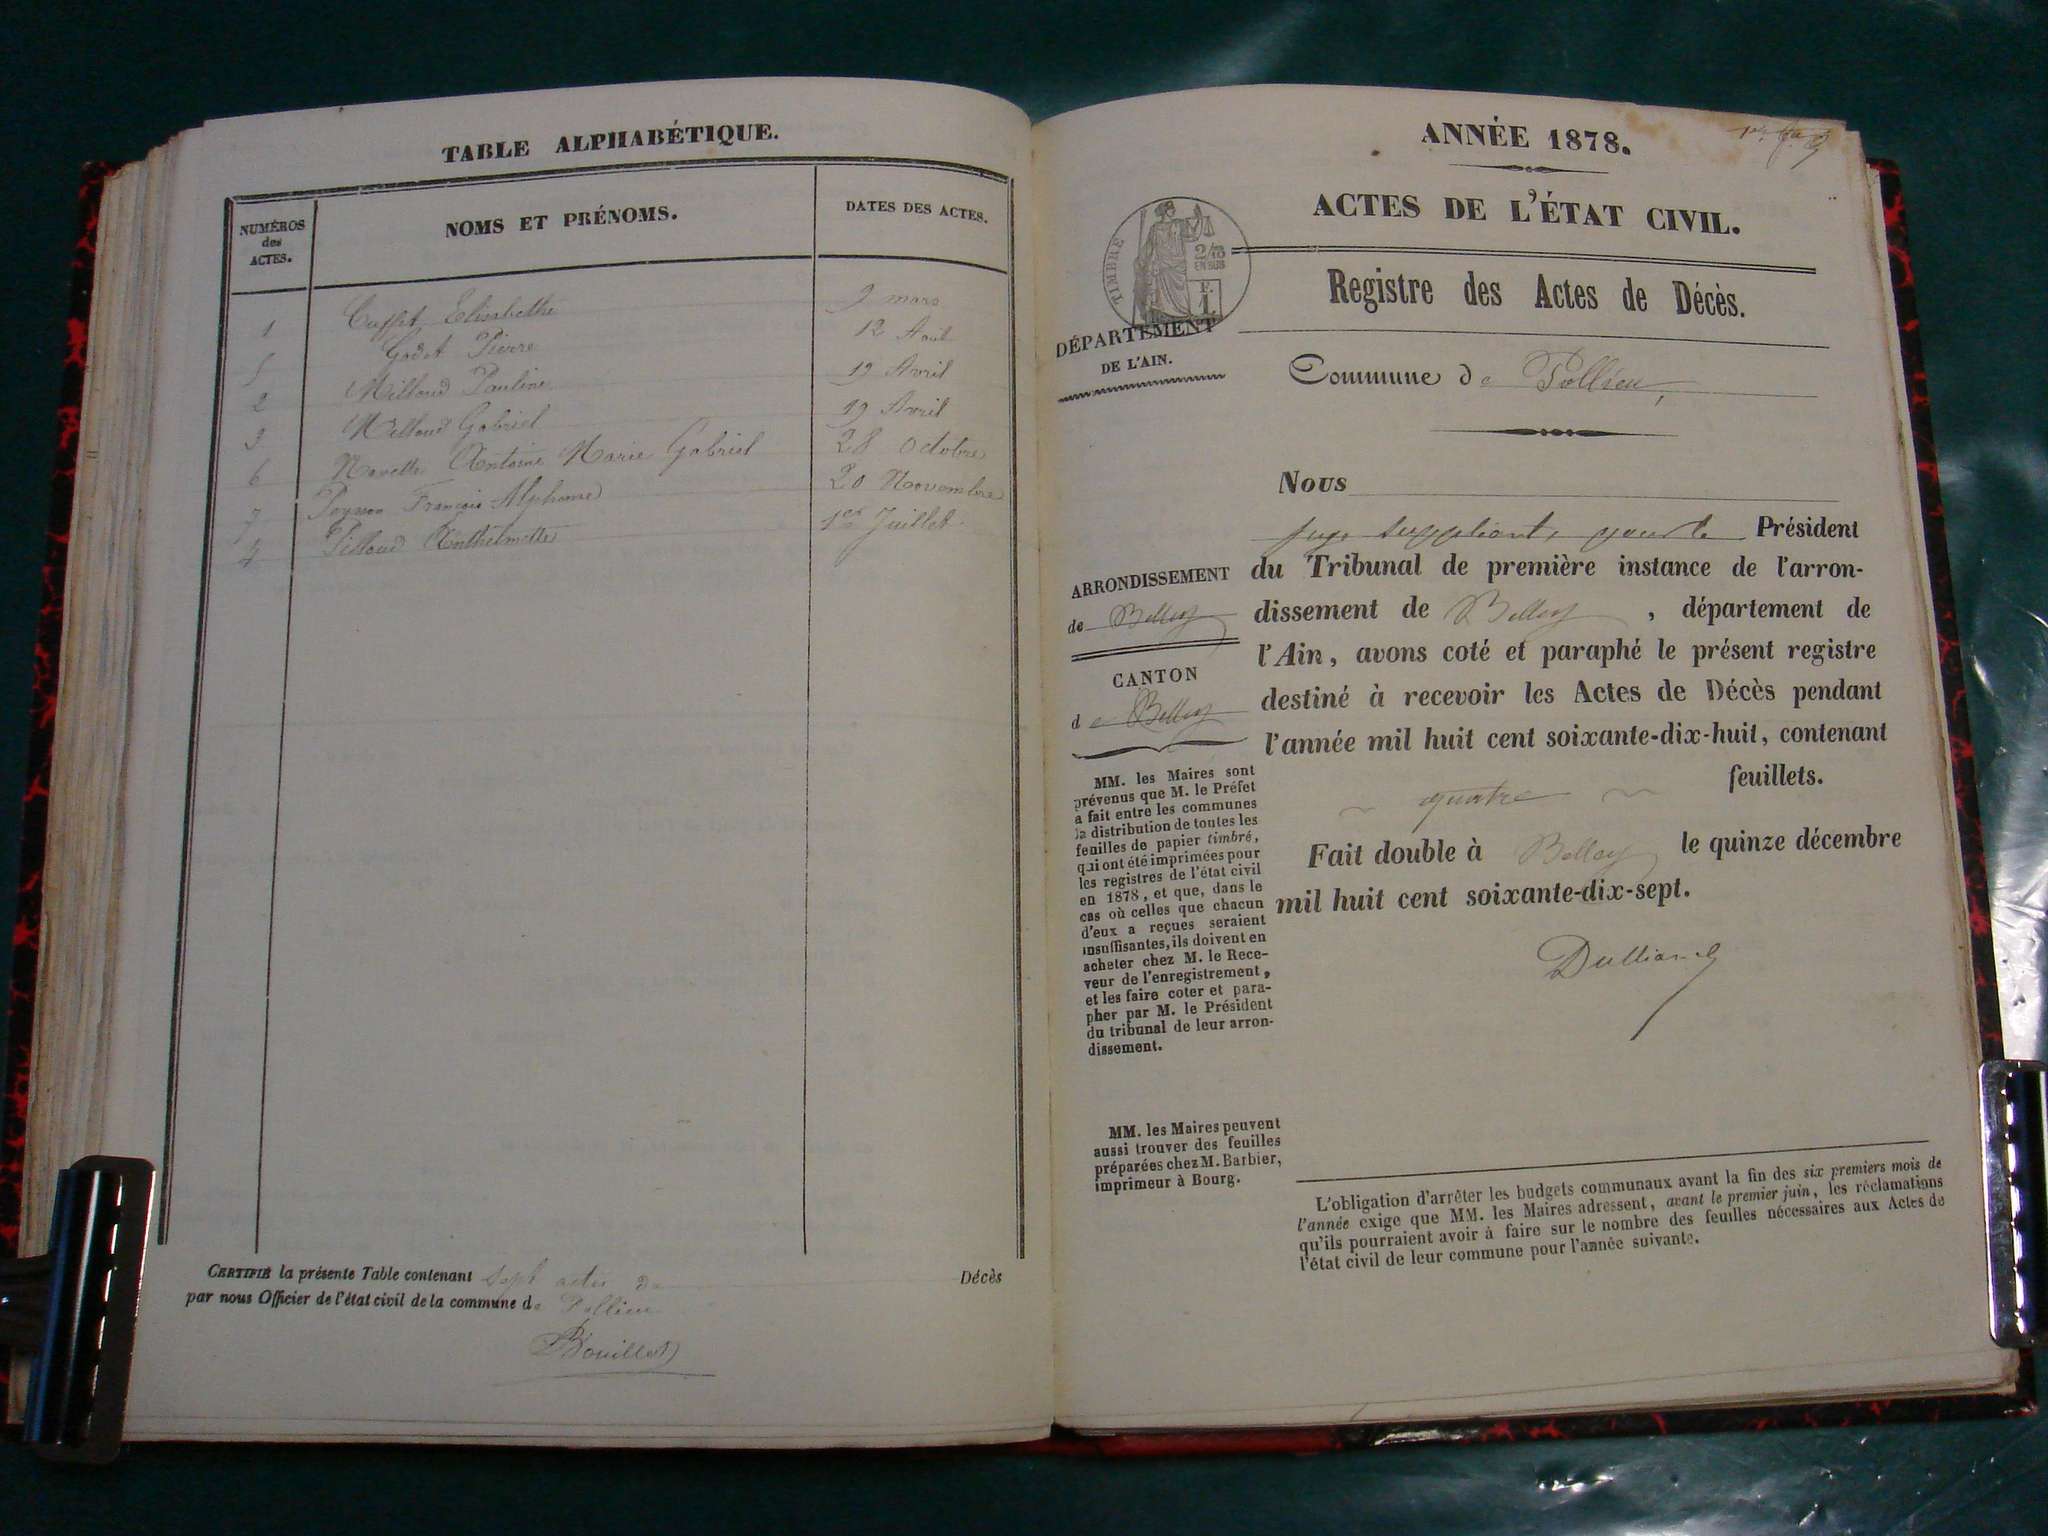 TABLE ALPHABÉTIQUE.
NUMÉROS
des
ACTES.
NOMS ET PRÉNOMS.
DATES DES ACTES.
1 Cuffet Elisabethe 9 mars
5 Godet Pierre 12 Aout
2 Milloud Pauline 19 Avril
3 Milloud Gabriel 19 Avril
6 Navette Antoine Marie Gabriel 28 Octobre
7 François Alphonse 20 Novembre
4 Pilloud Anthelmette 1er Juillet
CERTIFIÉ la présente Table contenant sept actes de Décès
par nous Officier de l'état civil de la commune de Pollieu
Bouillet
ANNÉE 1878.
ACTES DE L'ÉTAT CIVIL.
TIMBRE
2/10
EN SUS
F.
1
Registre des Actes de Décès.
DÉPARTEMENT
DE L'AIN.
Commune de Pollieu,
Nous
juge suppléant, pour le Président
du Tribunal de première instance de l'arron-
dissement de Belley, département de
l'Ain, avons coté et paraphé le présent registre
destiné à recevoir les Actes de Décès pendant
l'année mil huit cent soixante-dix-huit, contenant
quatre feuillets.
Fait double à Belley le quinze décembre
mil huit cent soixante-dix-sept.
ARRONDISSEMENT
de Belley
CANTON
de Belley
MM. les Maires sont
prévenus que M. le Préfet
a fait entre les communes
la distribution de toutes les
feuilles de papier timbré,
qui ont été imprimées pour
les registres de l'état civil
en 1878, et que, dans le
cas où celles que chacun
d'eux a reçues seraient
insuffisantes, ils doivent en
acheter chez M. le Rece-
veur de l'enregistrement,
et les faire coter et para-
pher par M. le Président
du tribunal de leur arron-
dissement.
MM. les Maires peuvent
aussi trouver des feuilles
préparées chez M. Barbier,
imprimeur à Bourg.
L'obligation d'arrêter les budgets communaux avant la fin des six premiers mois de
l'année exige que MM. les Maires adressent, avant le premier juin, les réclamations
qu'ils pourraient avoir à faire sur le nombre des feuilles nécessaires aux Actes de
l'état civil de leur commune pour l'année suivante.